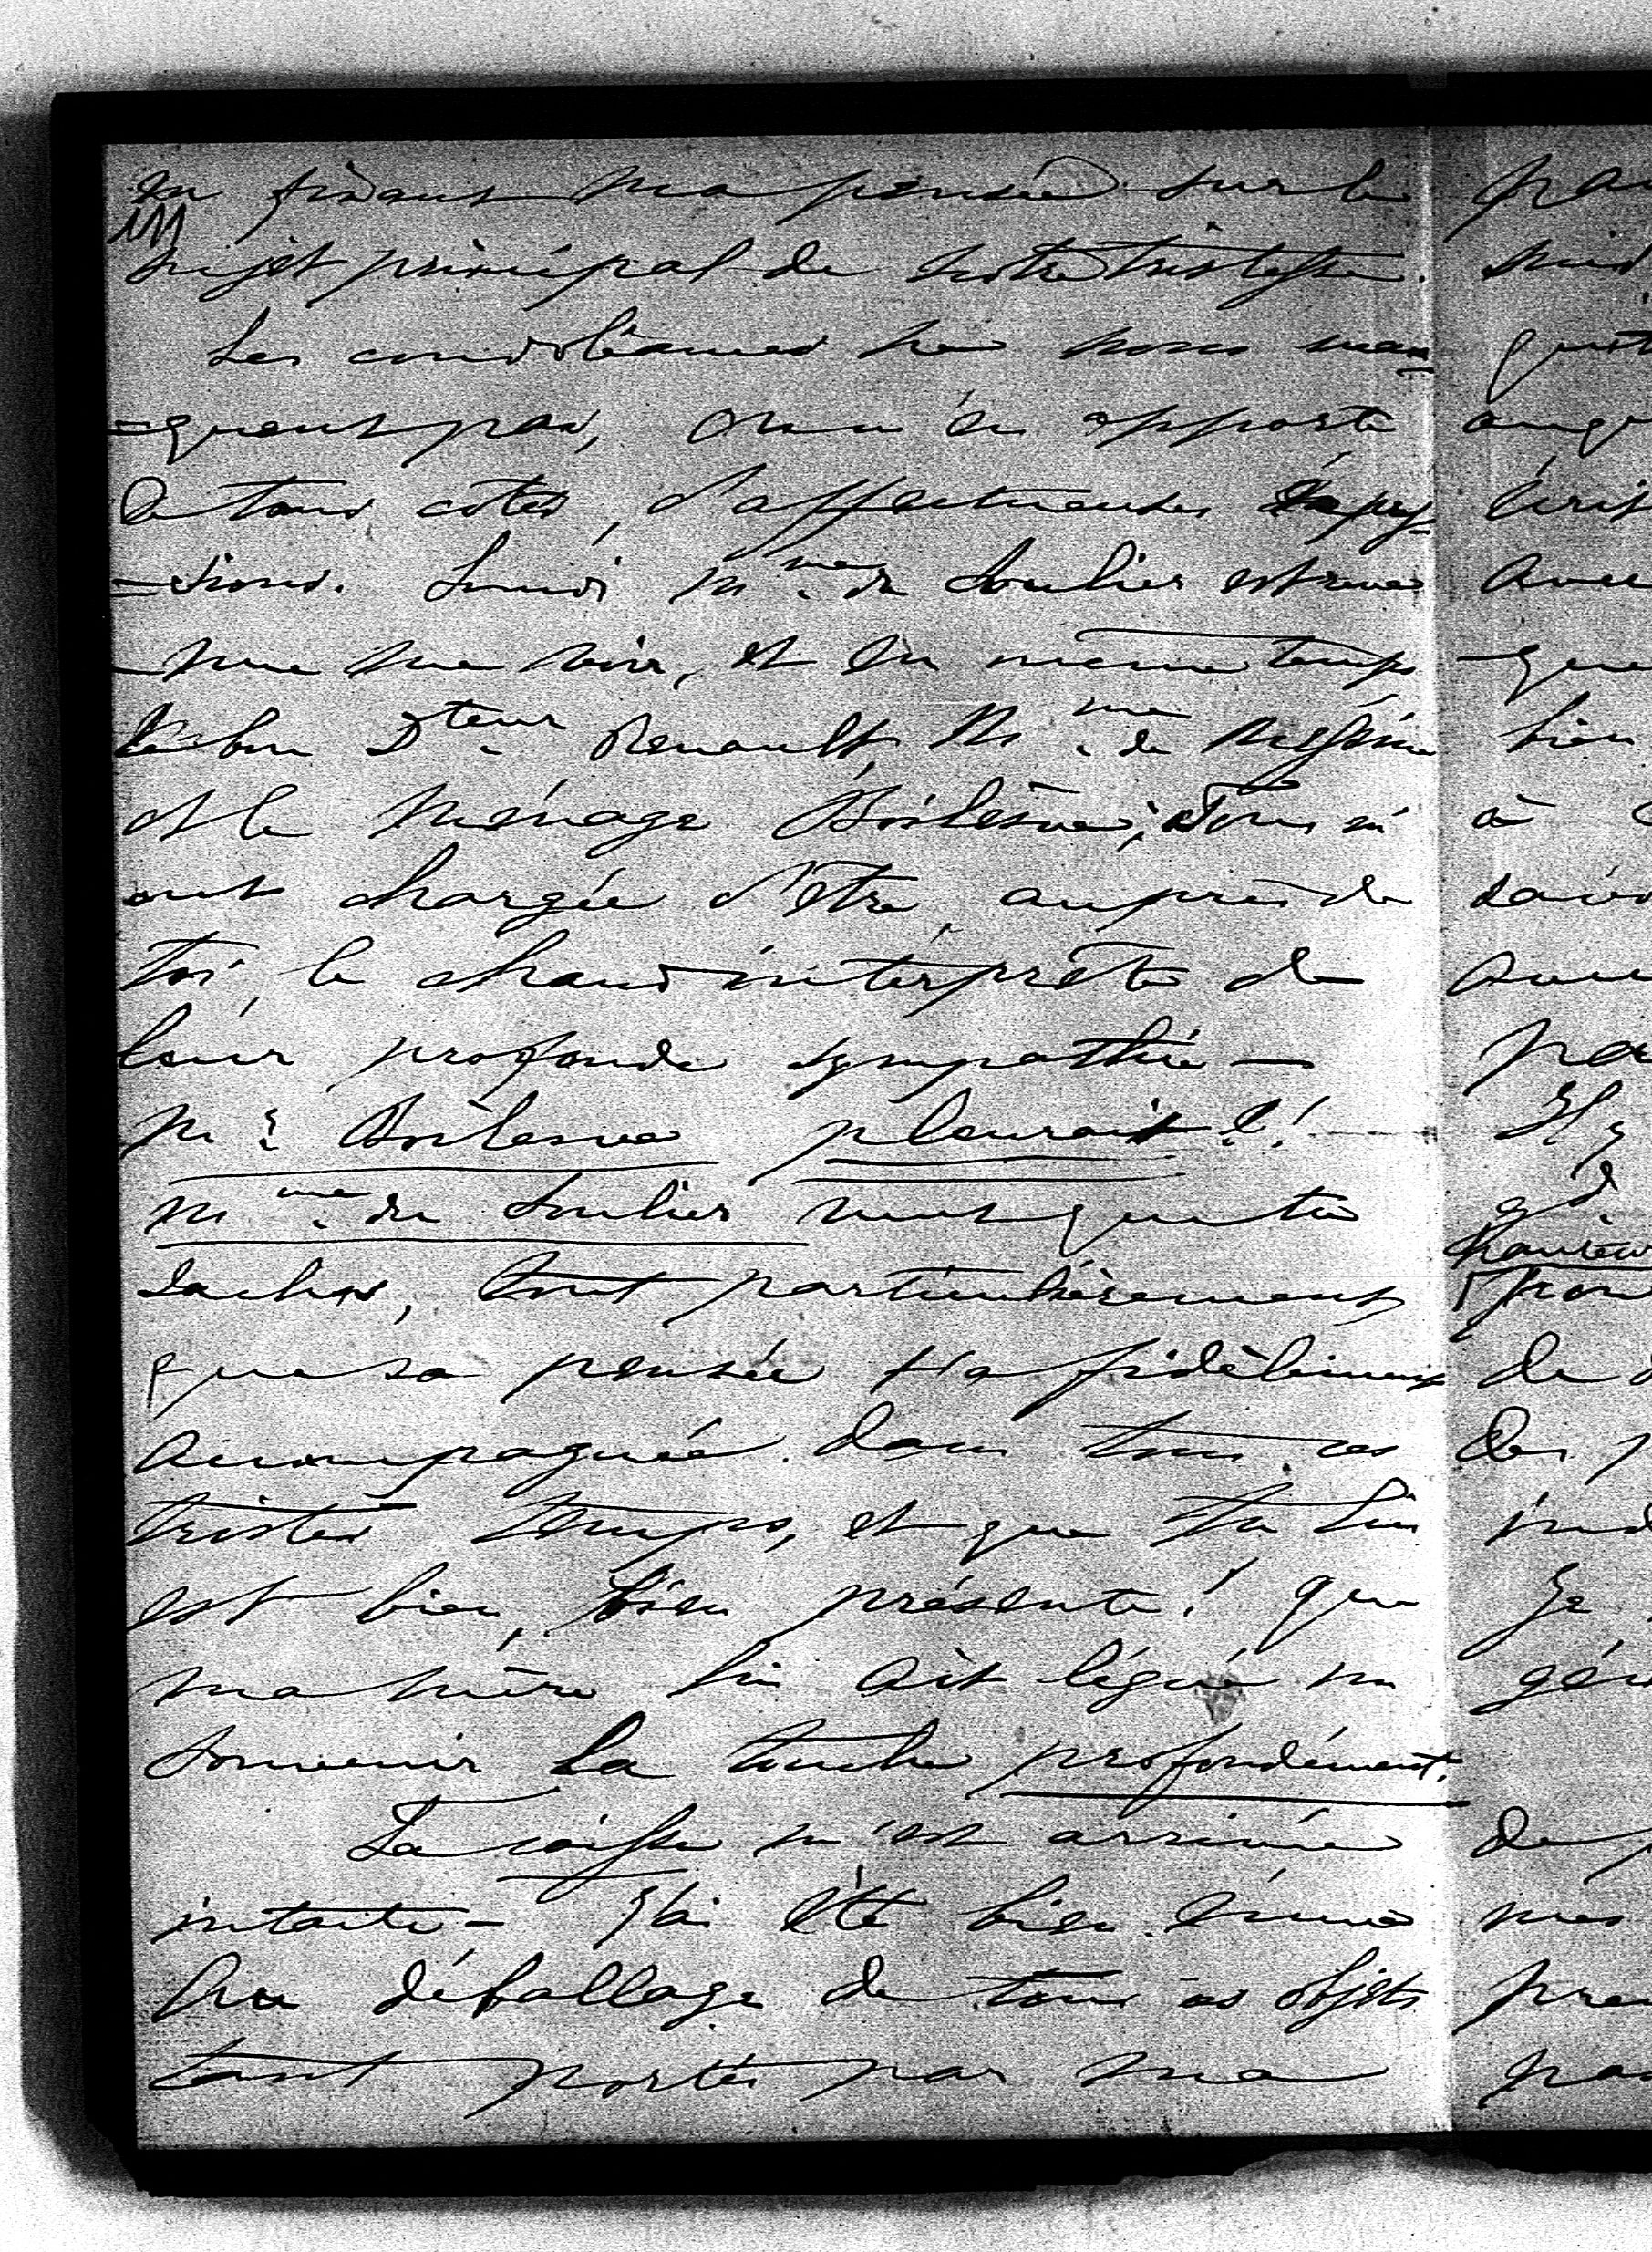 en fixant ma pensée sur le
111
sujet principal de notre tristesse.
Les condoléances ne nous man
-quent pas, on m'en apporte
de tous côtés, d'affectueuses
-sions. Lundi Mme du Soulier est reve
-nue me voir, et en même temps
le bon Dteur Renault, Mme de
et le ménage Boilesve; Tous m'
ont chargée d'être, auprès de
toi, le chaud interprète de
leur profonde sympathie —
Mr Boilesve pleurait !!
Mme du Soulier veut que tu
saches, tout particulièrement,
que sa pensée t'a fidèlement
accompagnée dans tous ces
tristes temps, et que tu lui
est bien, bien présente! que
ma mère lui ait légué un
souvenir la touche profondément.
La caisse m'est arrivée
intacte — J'ai été bien émue
Au déballage de tous ces objets
tant portés par ma